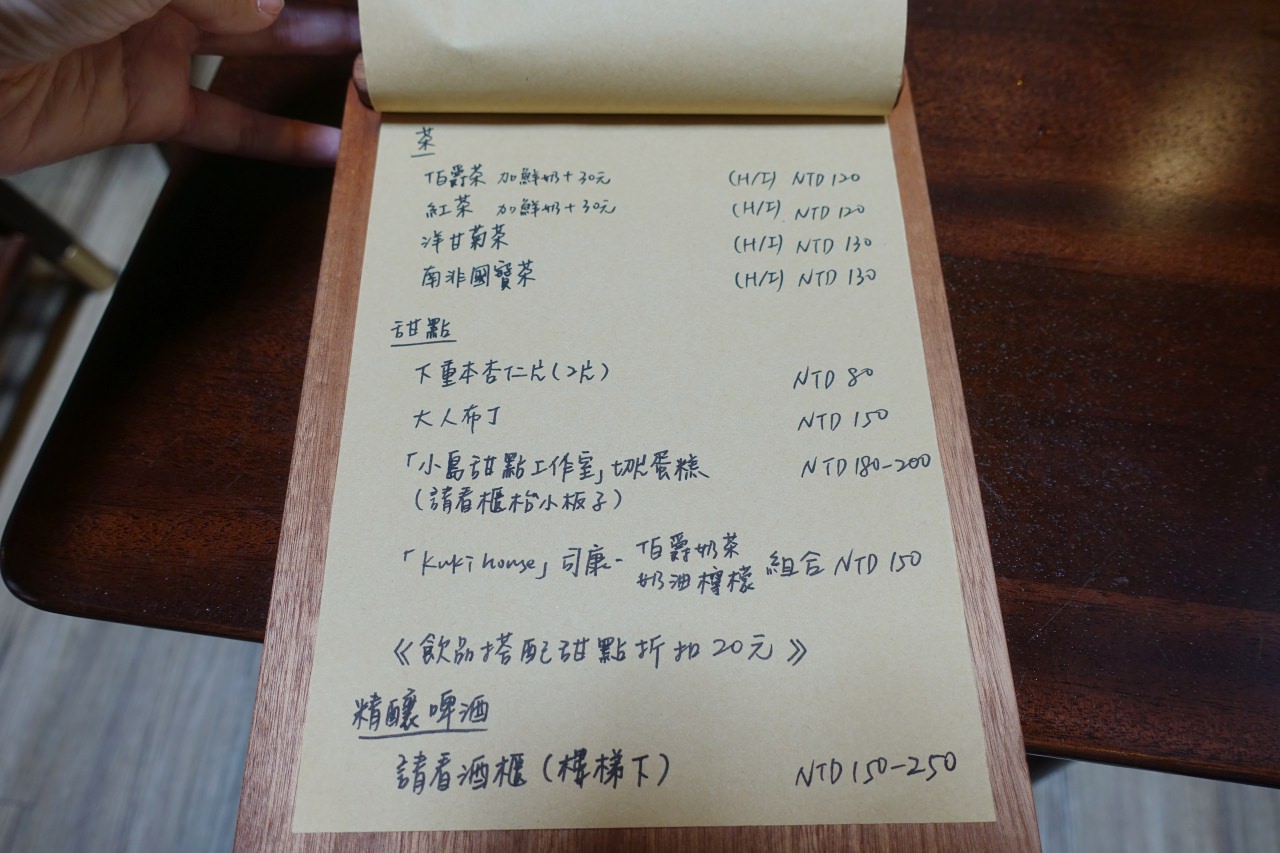 茶
伯爵茶 加鮮奶+30元 (H/I) NTD 120
紅茶 加鮮奶+30元 (H/I) NTD 120
洋甘菊茶 (H/I) NTD 130
南非國寶茶 (H/I) NTD 130
甜點
下重本杏仁片(2片) NTD 80
大人布丁 NTD 150
「小島甜點工作室」切片蛋糕 NTD 180-200
(請看櫃枱小板子)
「kuki house」司康- 伯爵奶茶
奶油檸檬 組合 NTD 150
《飲品搭配甜點折扣20元》
精釀啤酒
請看酒櫃(樓梯下) NTD 150-250